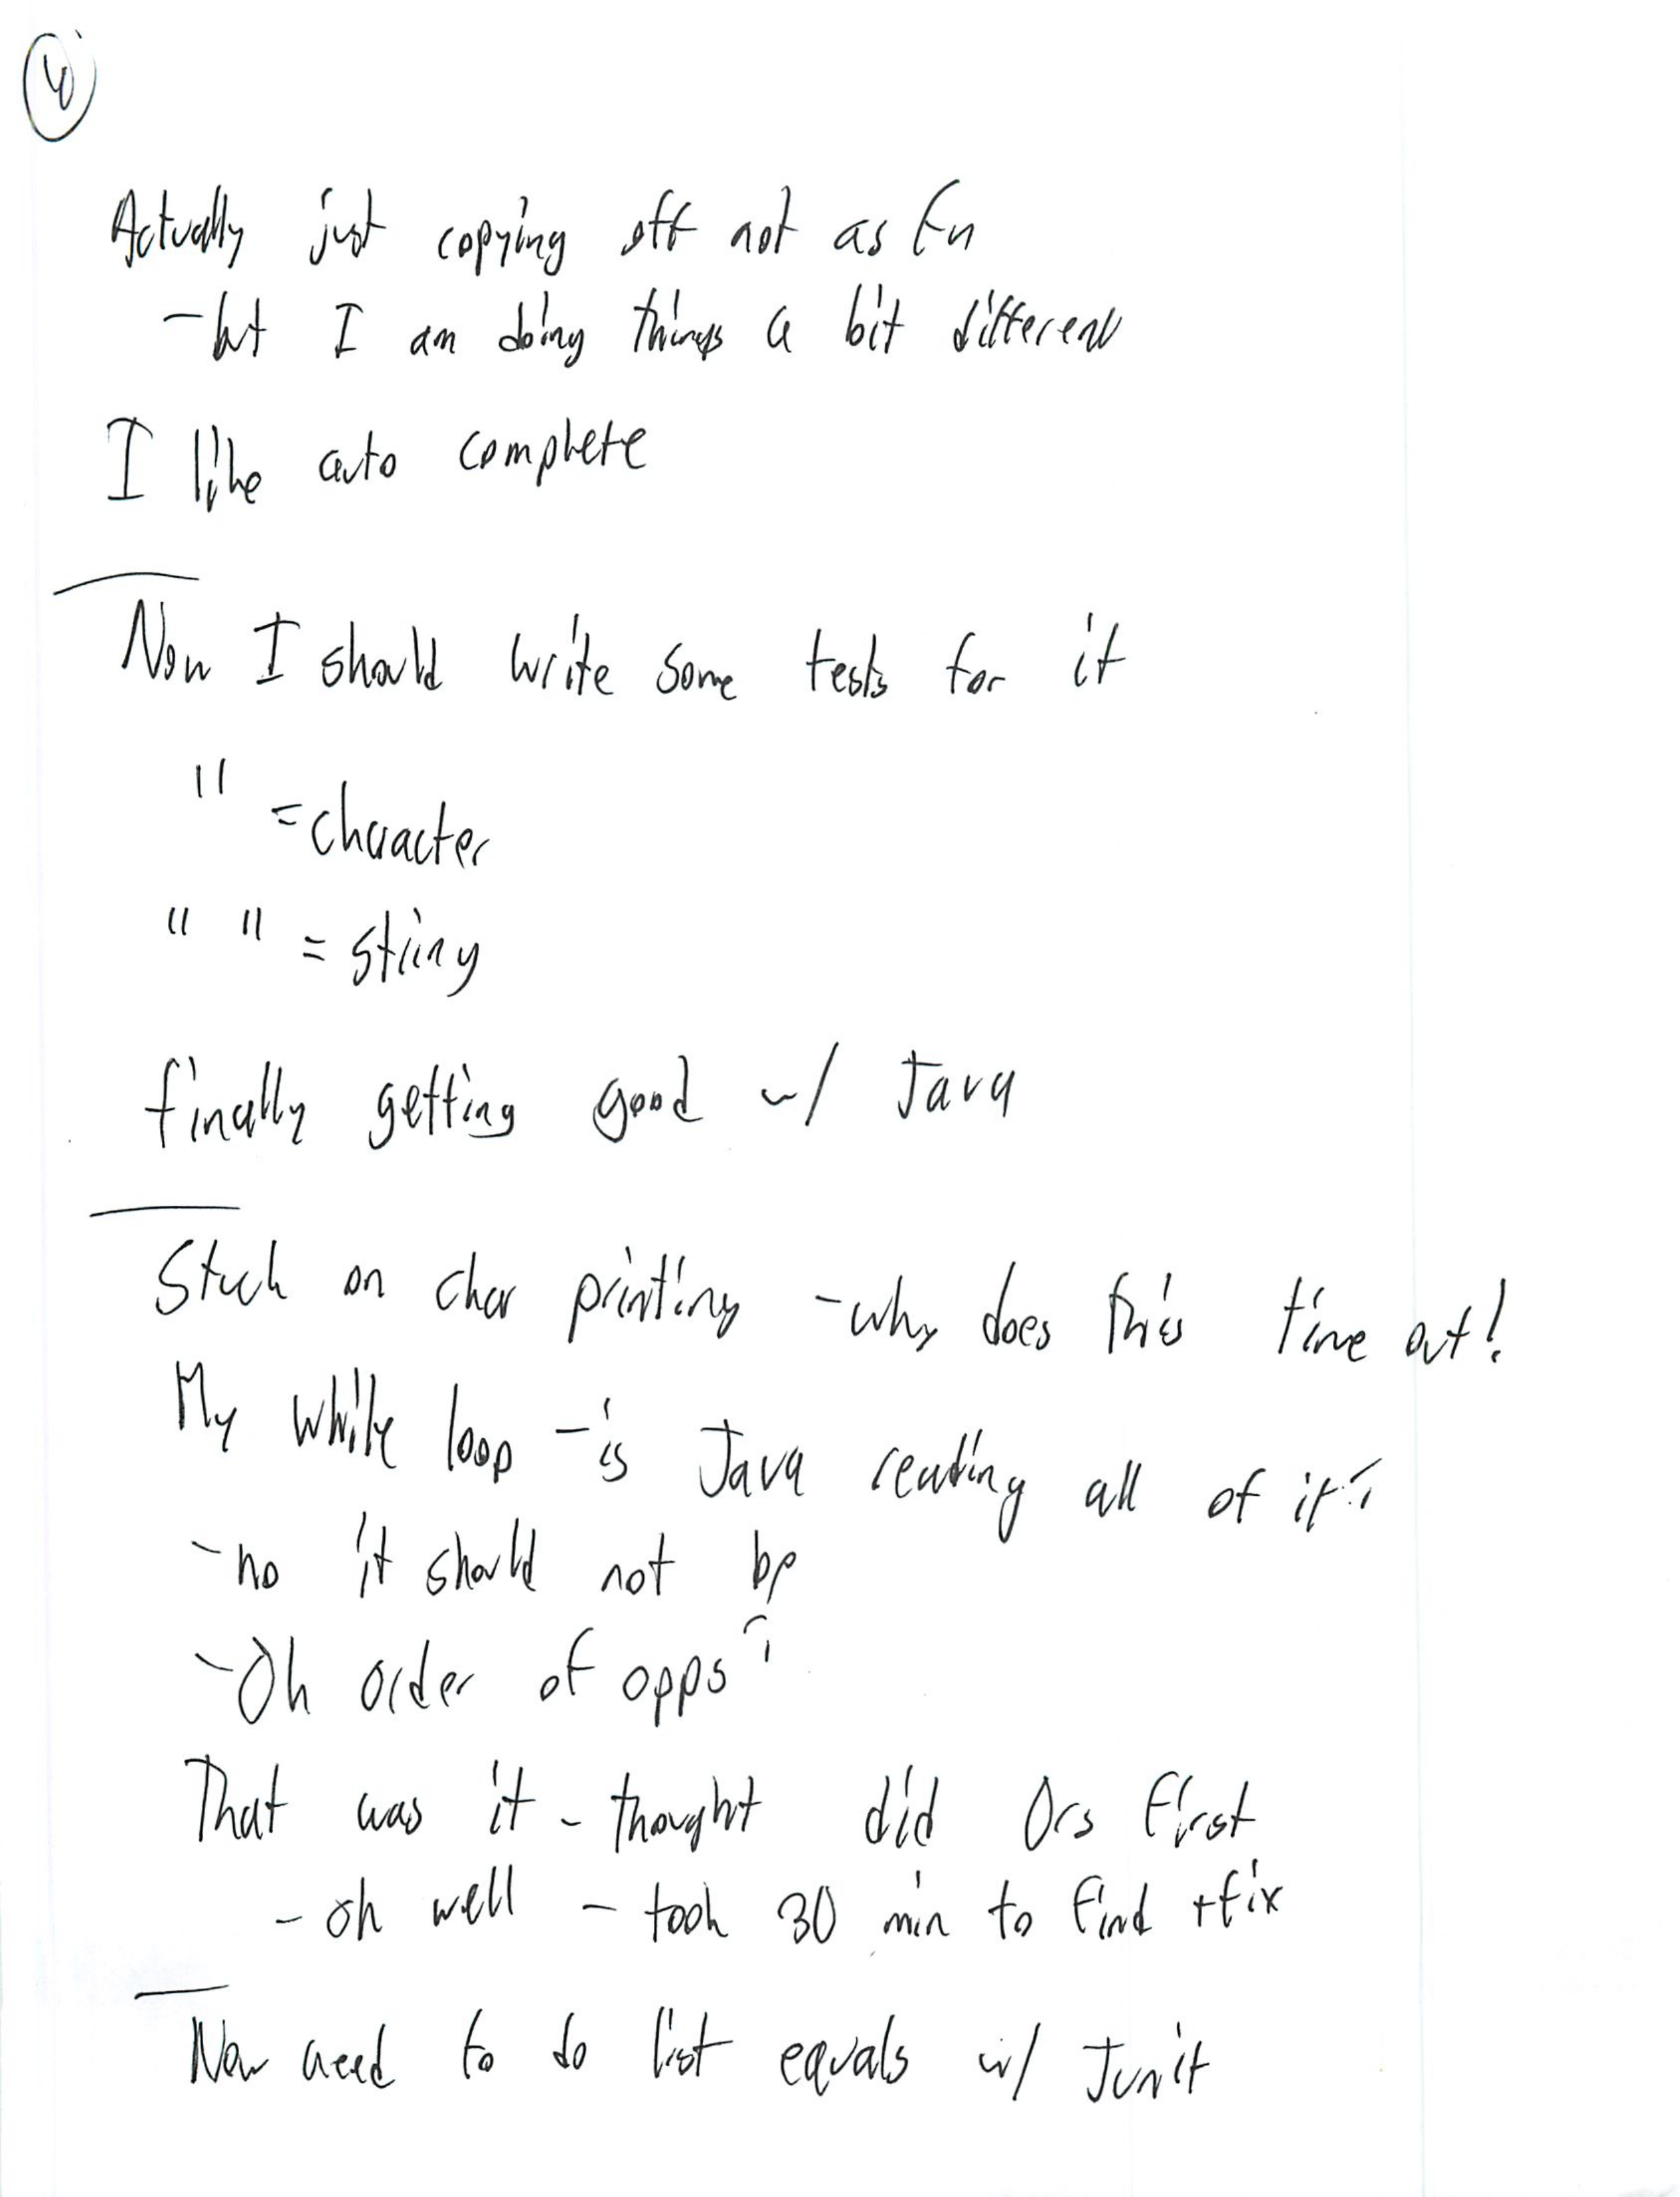 4
Actually just copying off not as fun
- but I am doing things a bit different
I like auto complete
Now I should write some tests for it
'' = character
" " = string
finally getting good w/ Java
Stuck on char printing - why does this time out!
My while loop - is Java reading all of it?
- no it should not be
- Oh order of opps?
That was it - thought did Ors first
- oh well - took 30 min to find + fix
Now need to do list equals w/ Junit